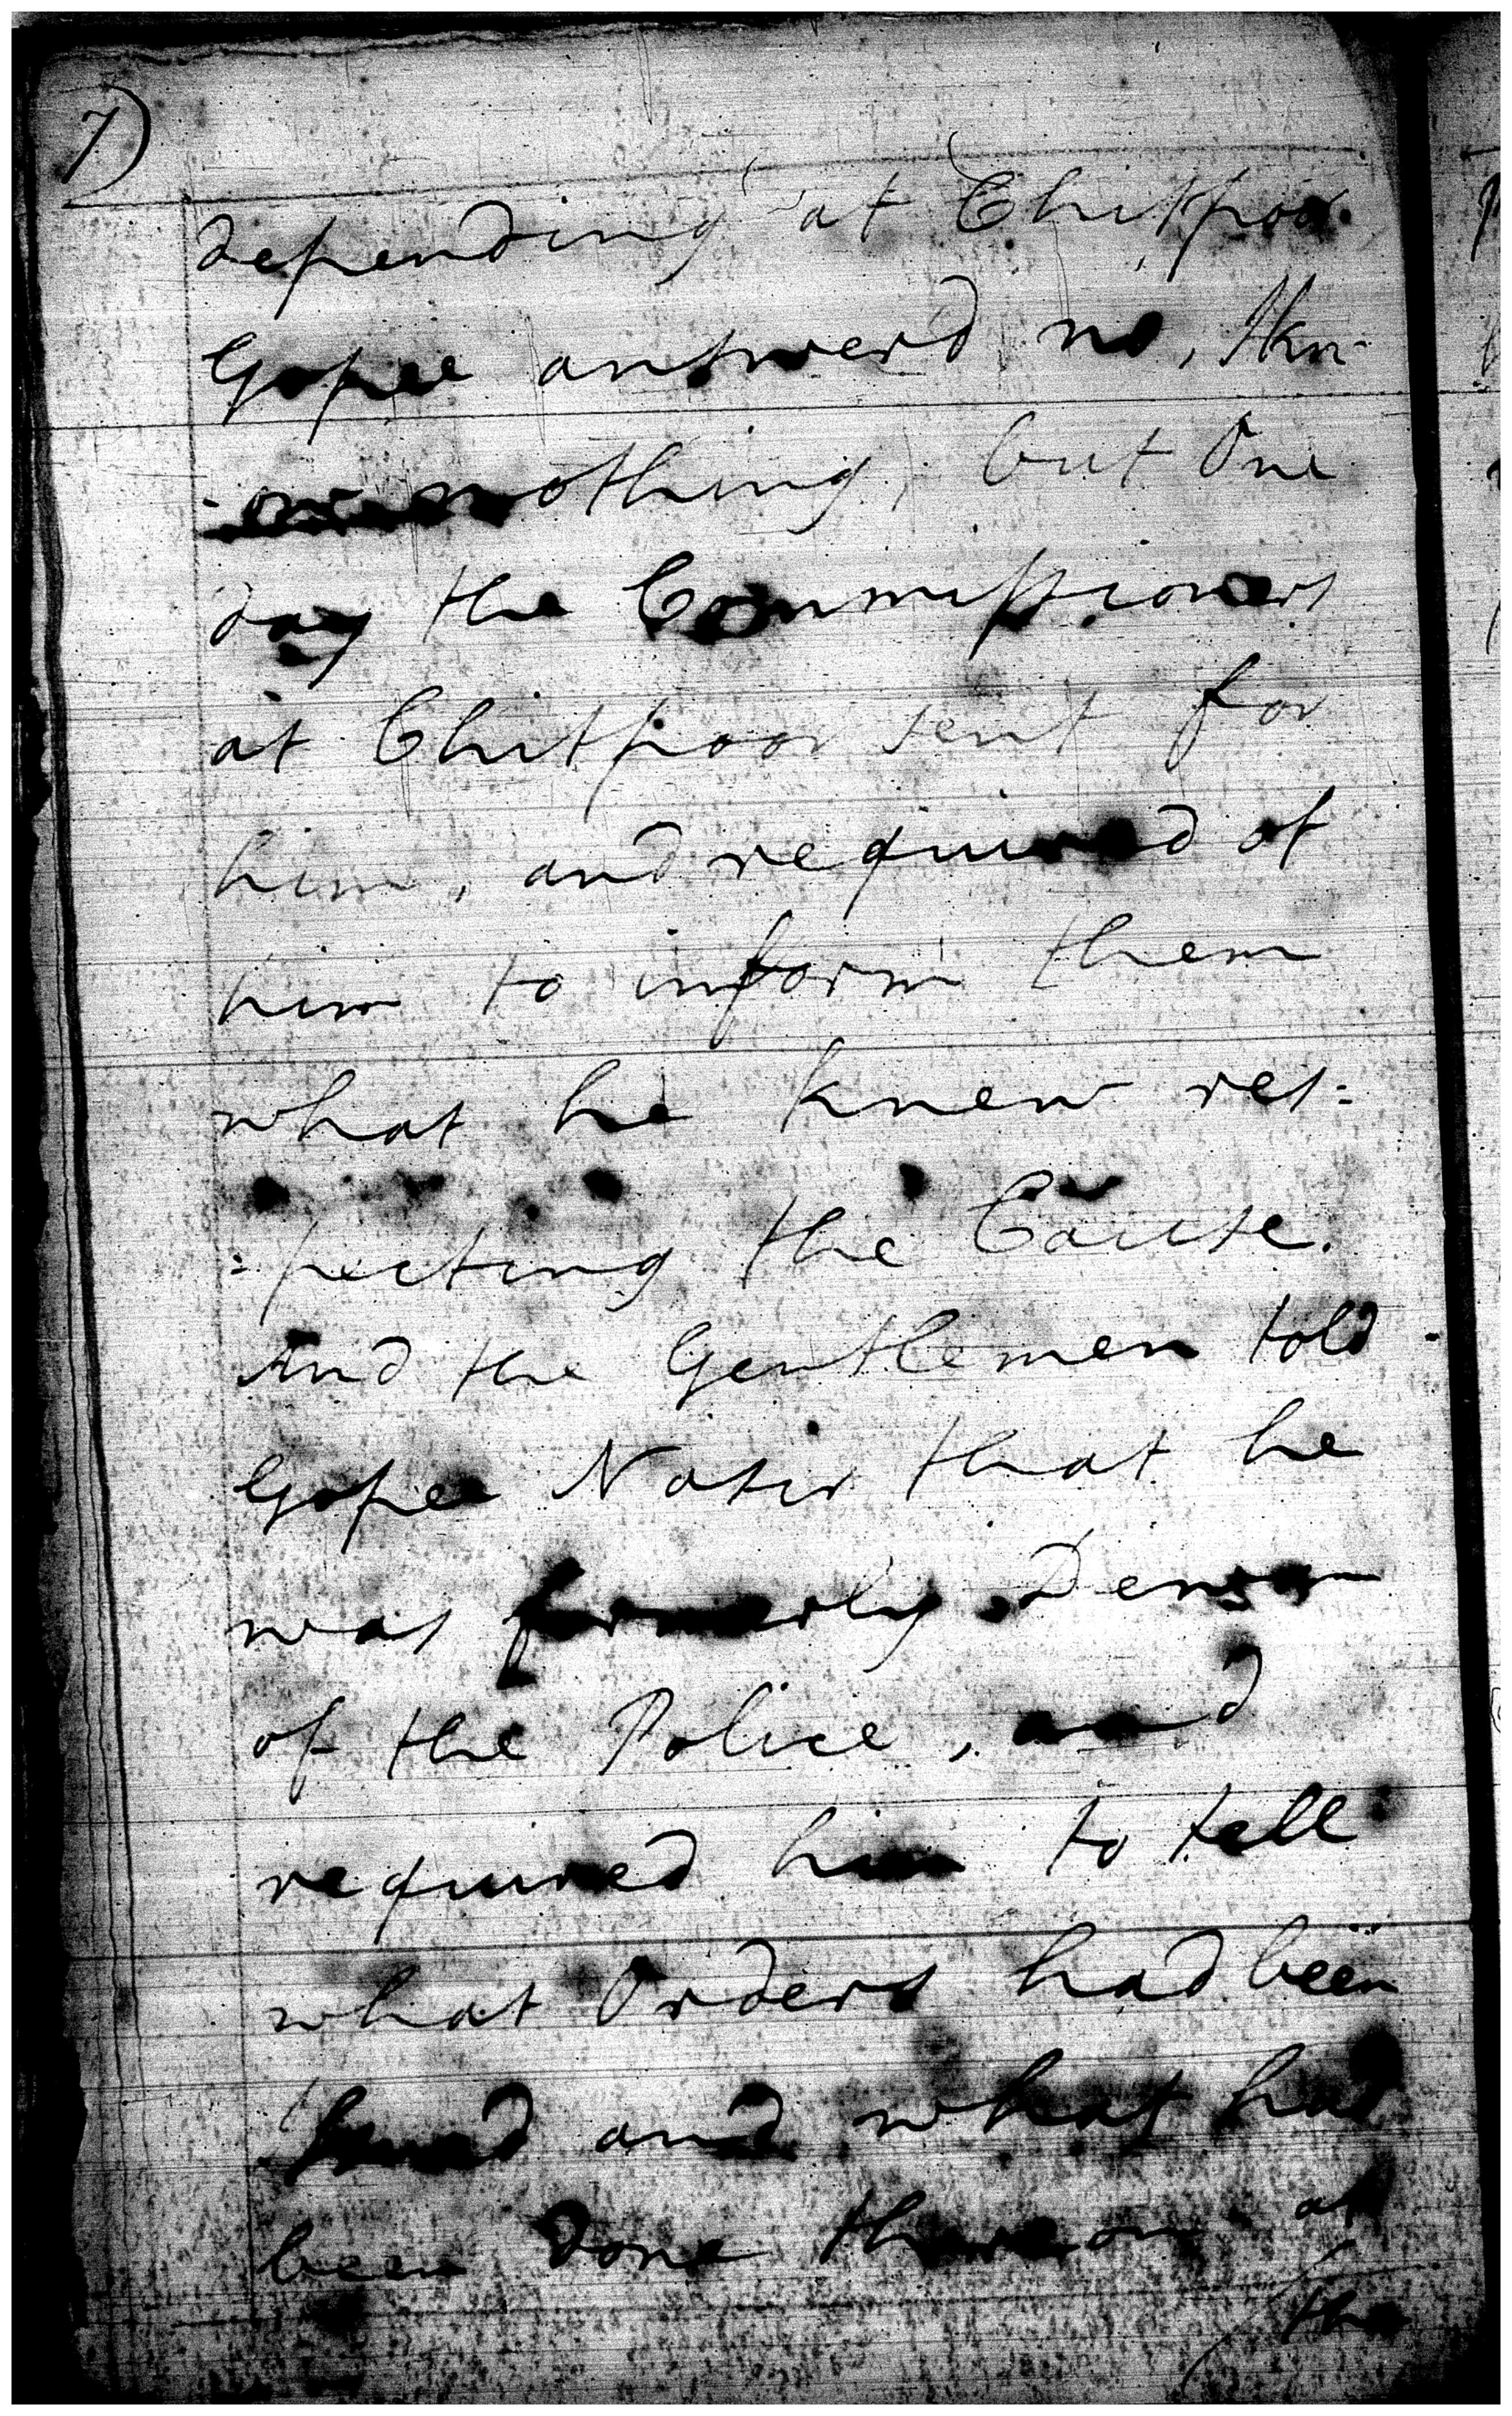 7)
depending at Chitpoor.
Gopee answerd no, I kn-
-ow nothing, but One
day the Commissioners
at Chitpoor sent for
him, and required of
him to inform them
what he knew res=
=pecting the Cause.
And the Gentlemen told
Gopee Nasir that he
was formerly Dewan
of the Police, and
required him to tell
what Orders had been
and what had
been done thereon at
the